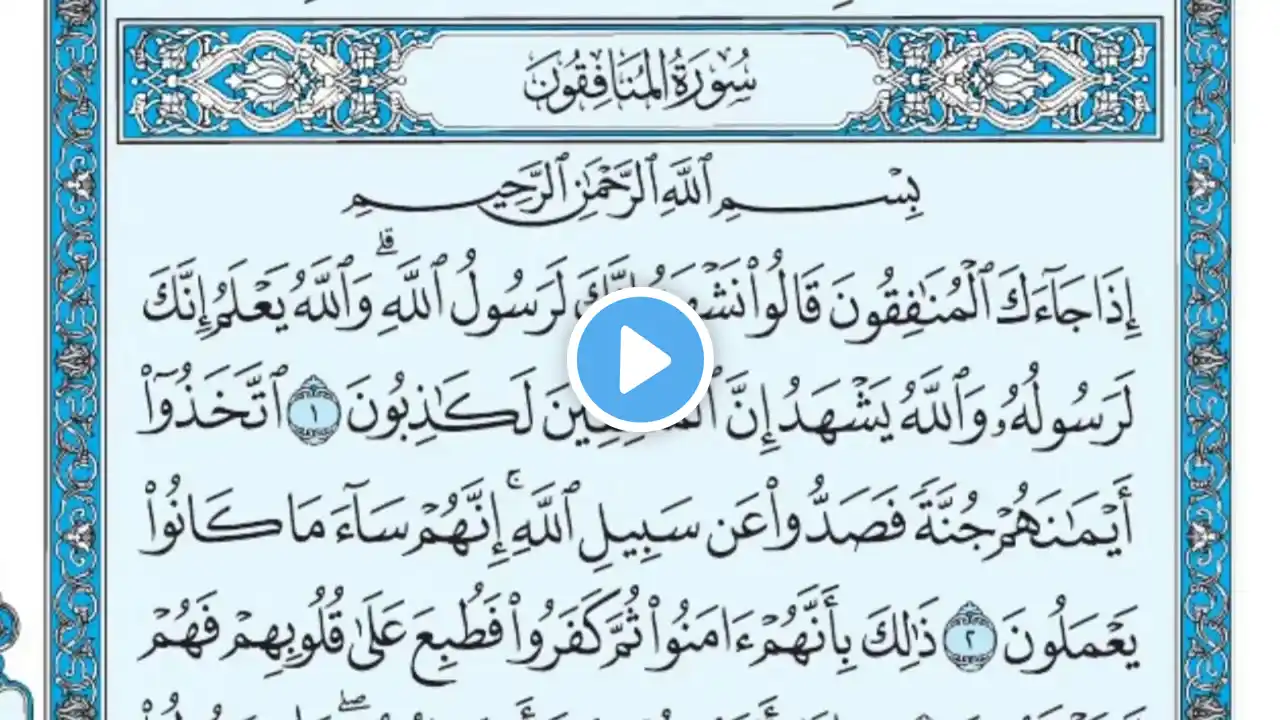 سُورَةُ المُنَافِقُونَ
بِسْمِ ٱللَّهِ ٱلرَّحْمَٰنِ ٱلرَّحِيمِ
إِذَا جَآءَكَ ٱلْمُنَٰفِقُونَ قَالُوا۟ نَشْهَدُ إِنَّكَ لَرَسُولُ ٱللَّهِ ۗ وَٱللَّهُ يَعْلَمُ إِنَّكَ
لَرَسُولُهُۥ وَٱللَّهُ يَشْهَدُ إِنَّ لَكَٰذِبُونَ ١ ٱتَّخَذُوٓا۟
أَيْمَٰنَهُمْ جُنَّةً فَصَدُّوا۟ عَن سَبِيلِ ٱللَّهِ ۚ إِنَّهُمْ سَآءَ مَا كَانُوا۟
يَعْمَلُونَ ٢ ذَٰلِكَ بِأَنَّهُمْ ءَامَنُوا۟ ثُمَّ كَفَرُوا۟ فَطُبِعَ عَلَىٰ قُلُوبِهِمْ فَهُمْ